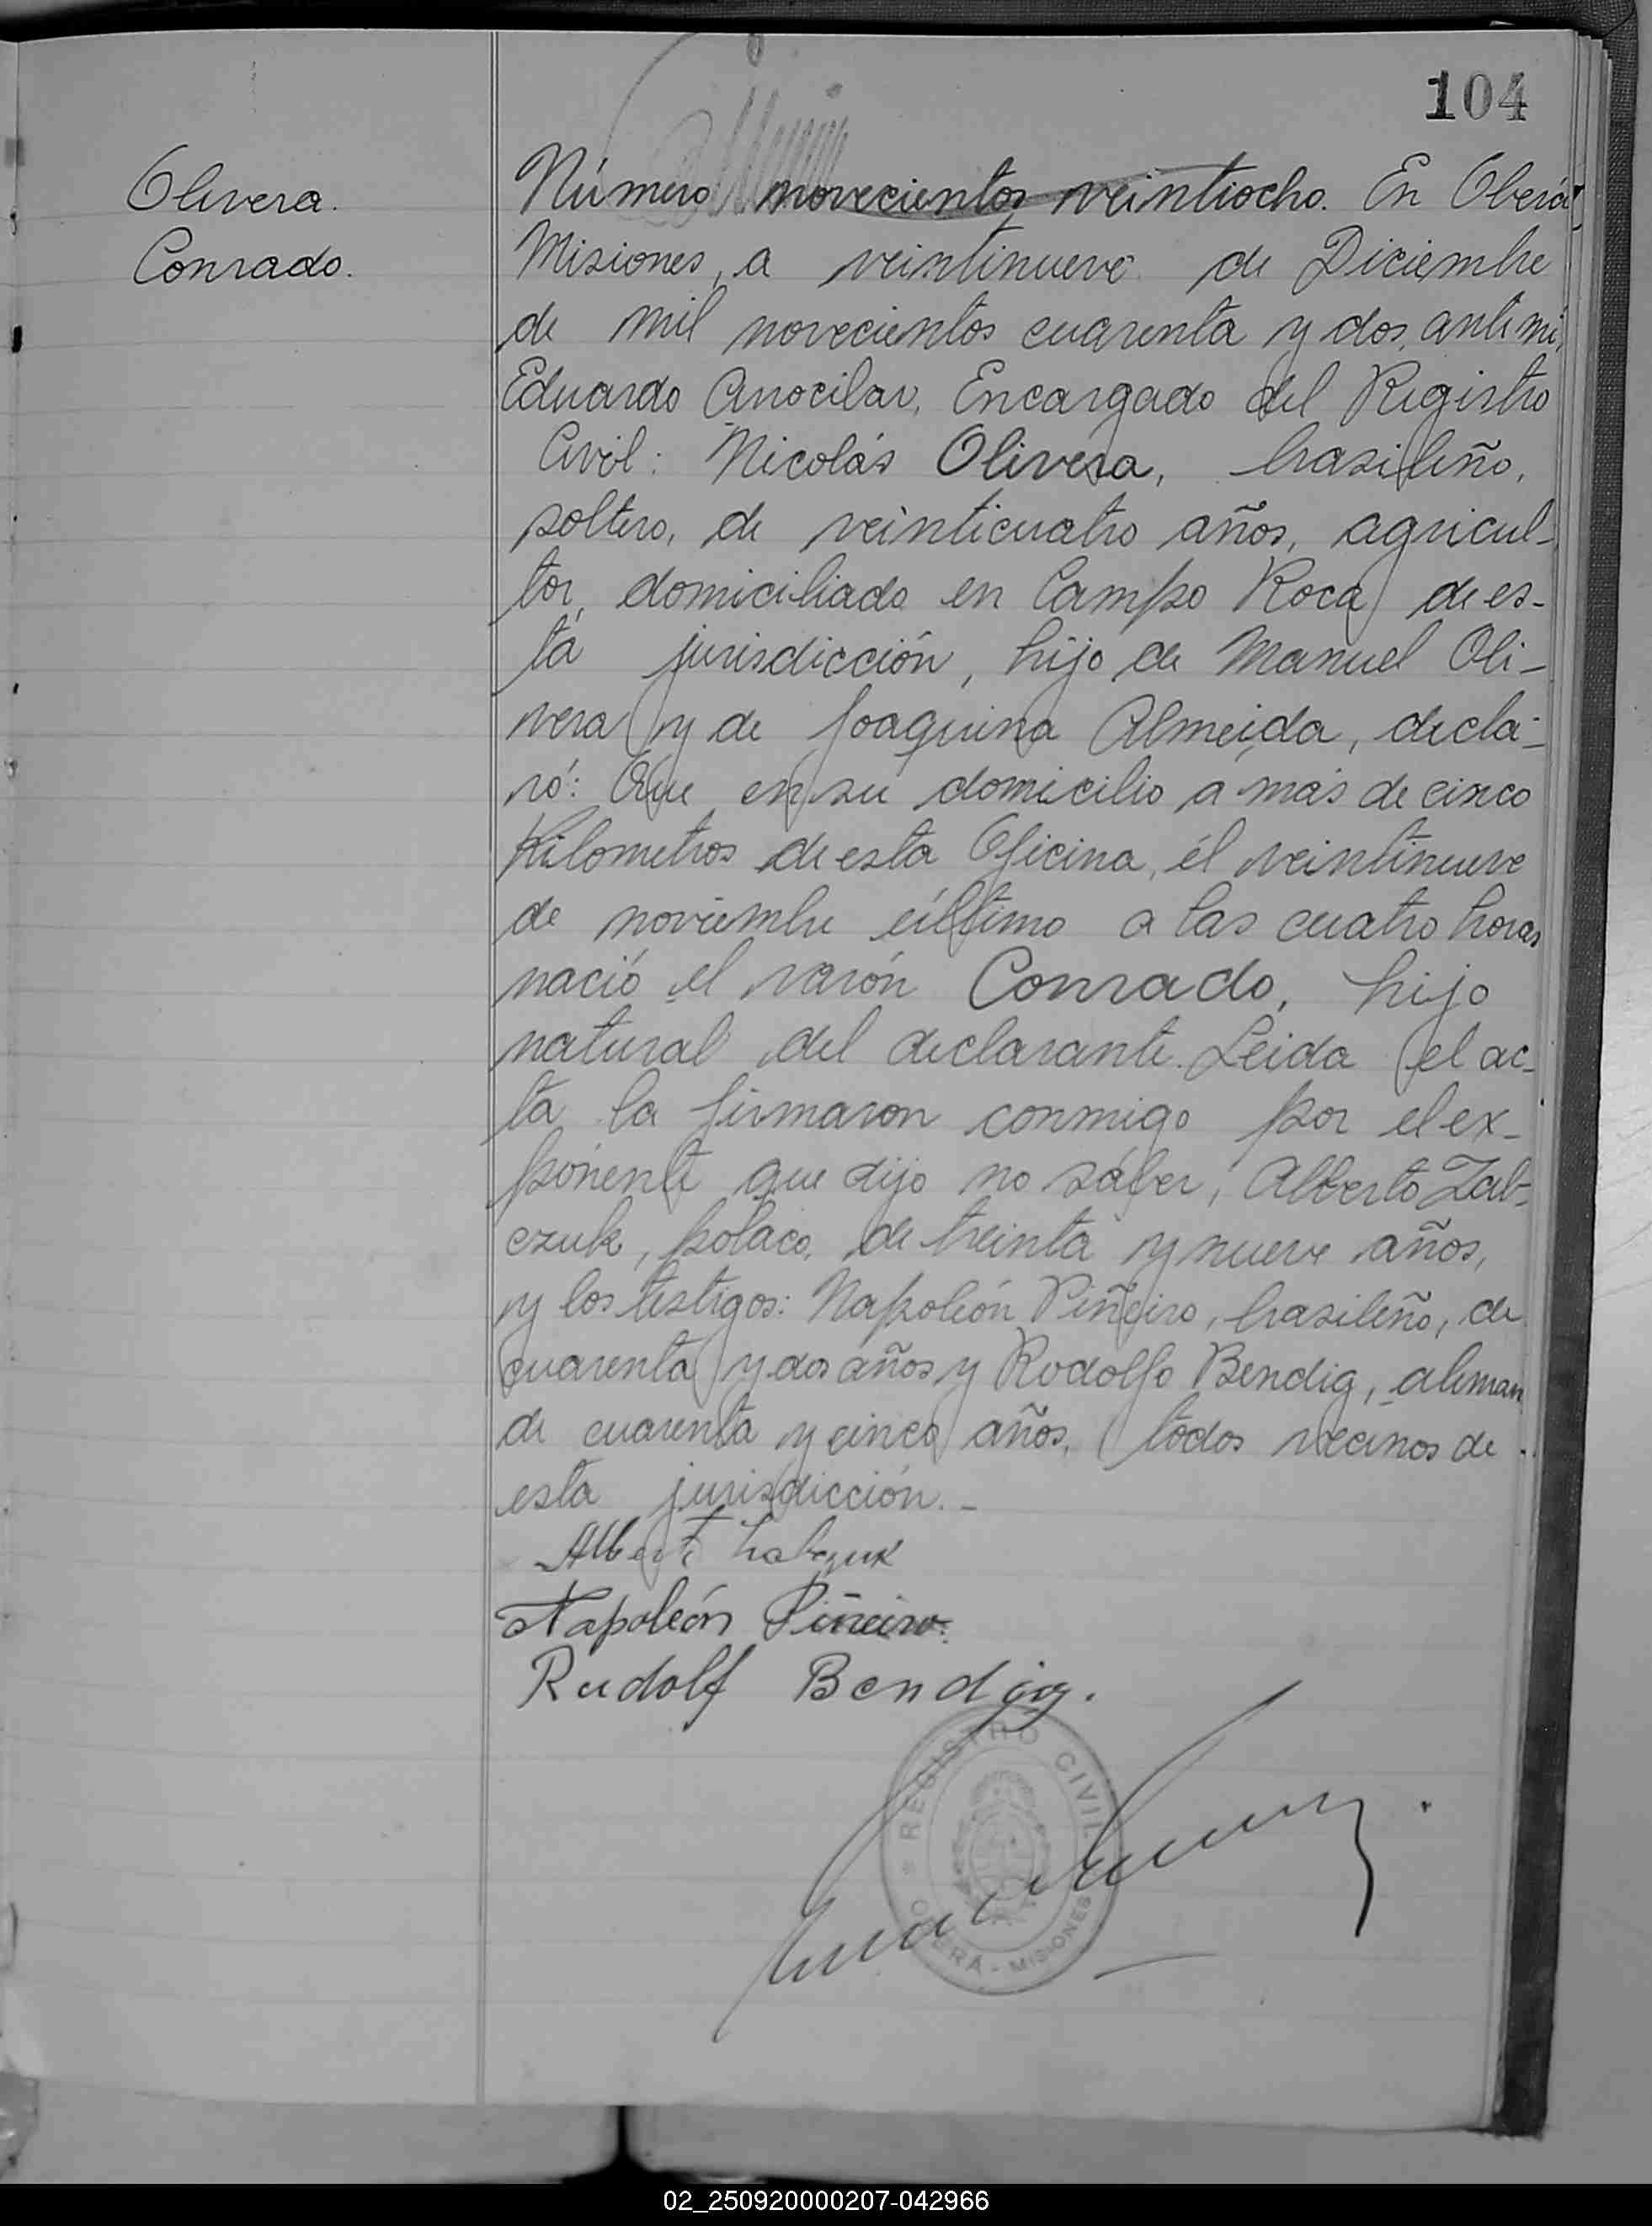 104
Olivera.
Conrado.
Número novecientos veintiocho. En Oberá
Misiones, a veintinueve de Diciembre
de mil novecientos cuarenta y dos, ante mí,
Eduardo Encargado del Registro
Civil: Nicolás Olivera, brasileño,
soltero, de veinticuatro años, agricul-
tor, domiciliado en Campo Roca de es-
ta jurisdicción, hijo de Manuel Oli-
vera y de Joaquina Almeida, decla-
ró: Que en su domicilio a más de cinco
Kilometros de esta Oficina, el veintinueve
de noviembre último a las cuatro horas
nació el varón Conrado, hijo
natural del declarante. Leida el ac-
ta la firmaron conmigo por el ex-
ponente que dijo no saber, Alberto Zab-
czuk, polaco, de treinta y nueve años,
y los testigos: Napoleón Piñeiro, brasileño, de
cuarenta y dos años y Rodolfo Bendig, aleman
de cuarenta y cinco años, todos vecinos de
esta jurisdicción.-
Napoleón Piñeiro.
Rudolf Bendig.
REGISTRO CIVIL
OBERÁ - MISIONES
02_250920000207-042966